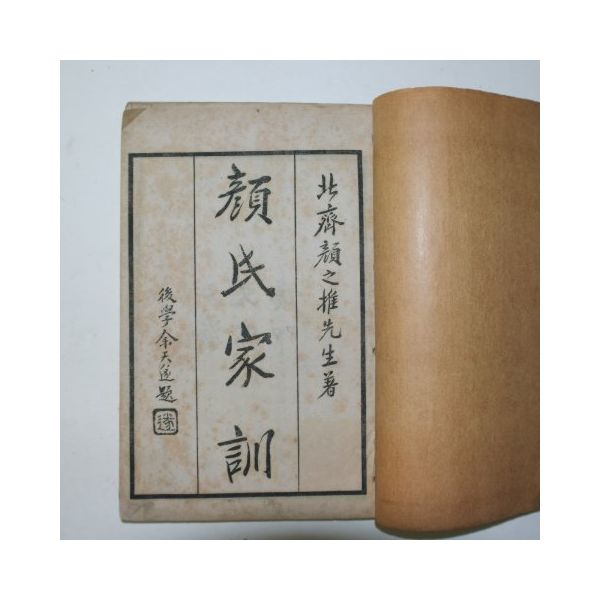 北齊顔之推先生著
顔氏家訓
後學余天遂題
遂